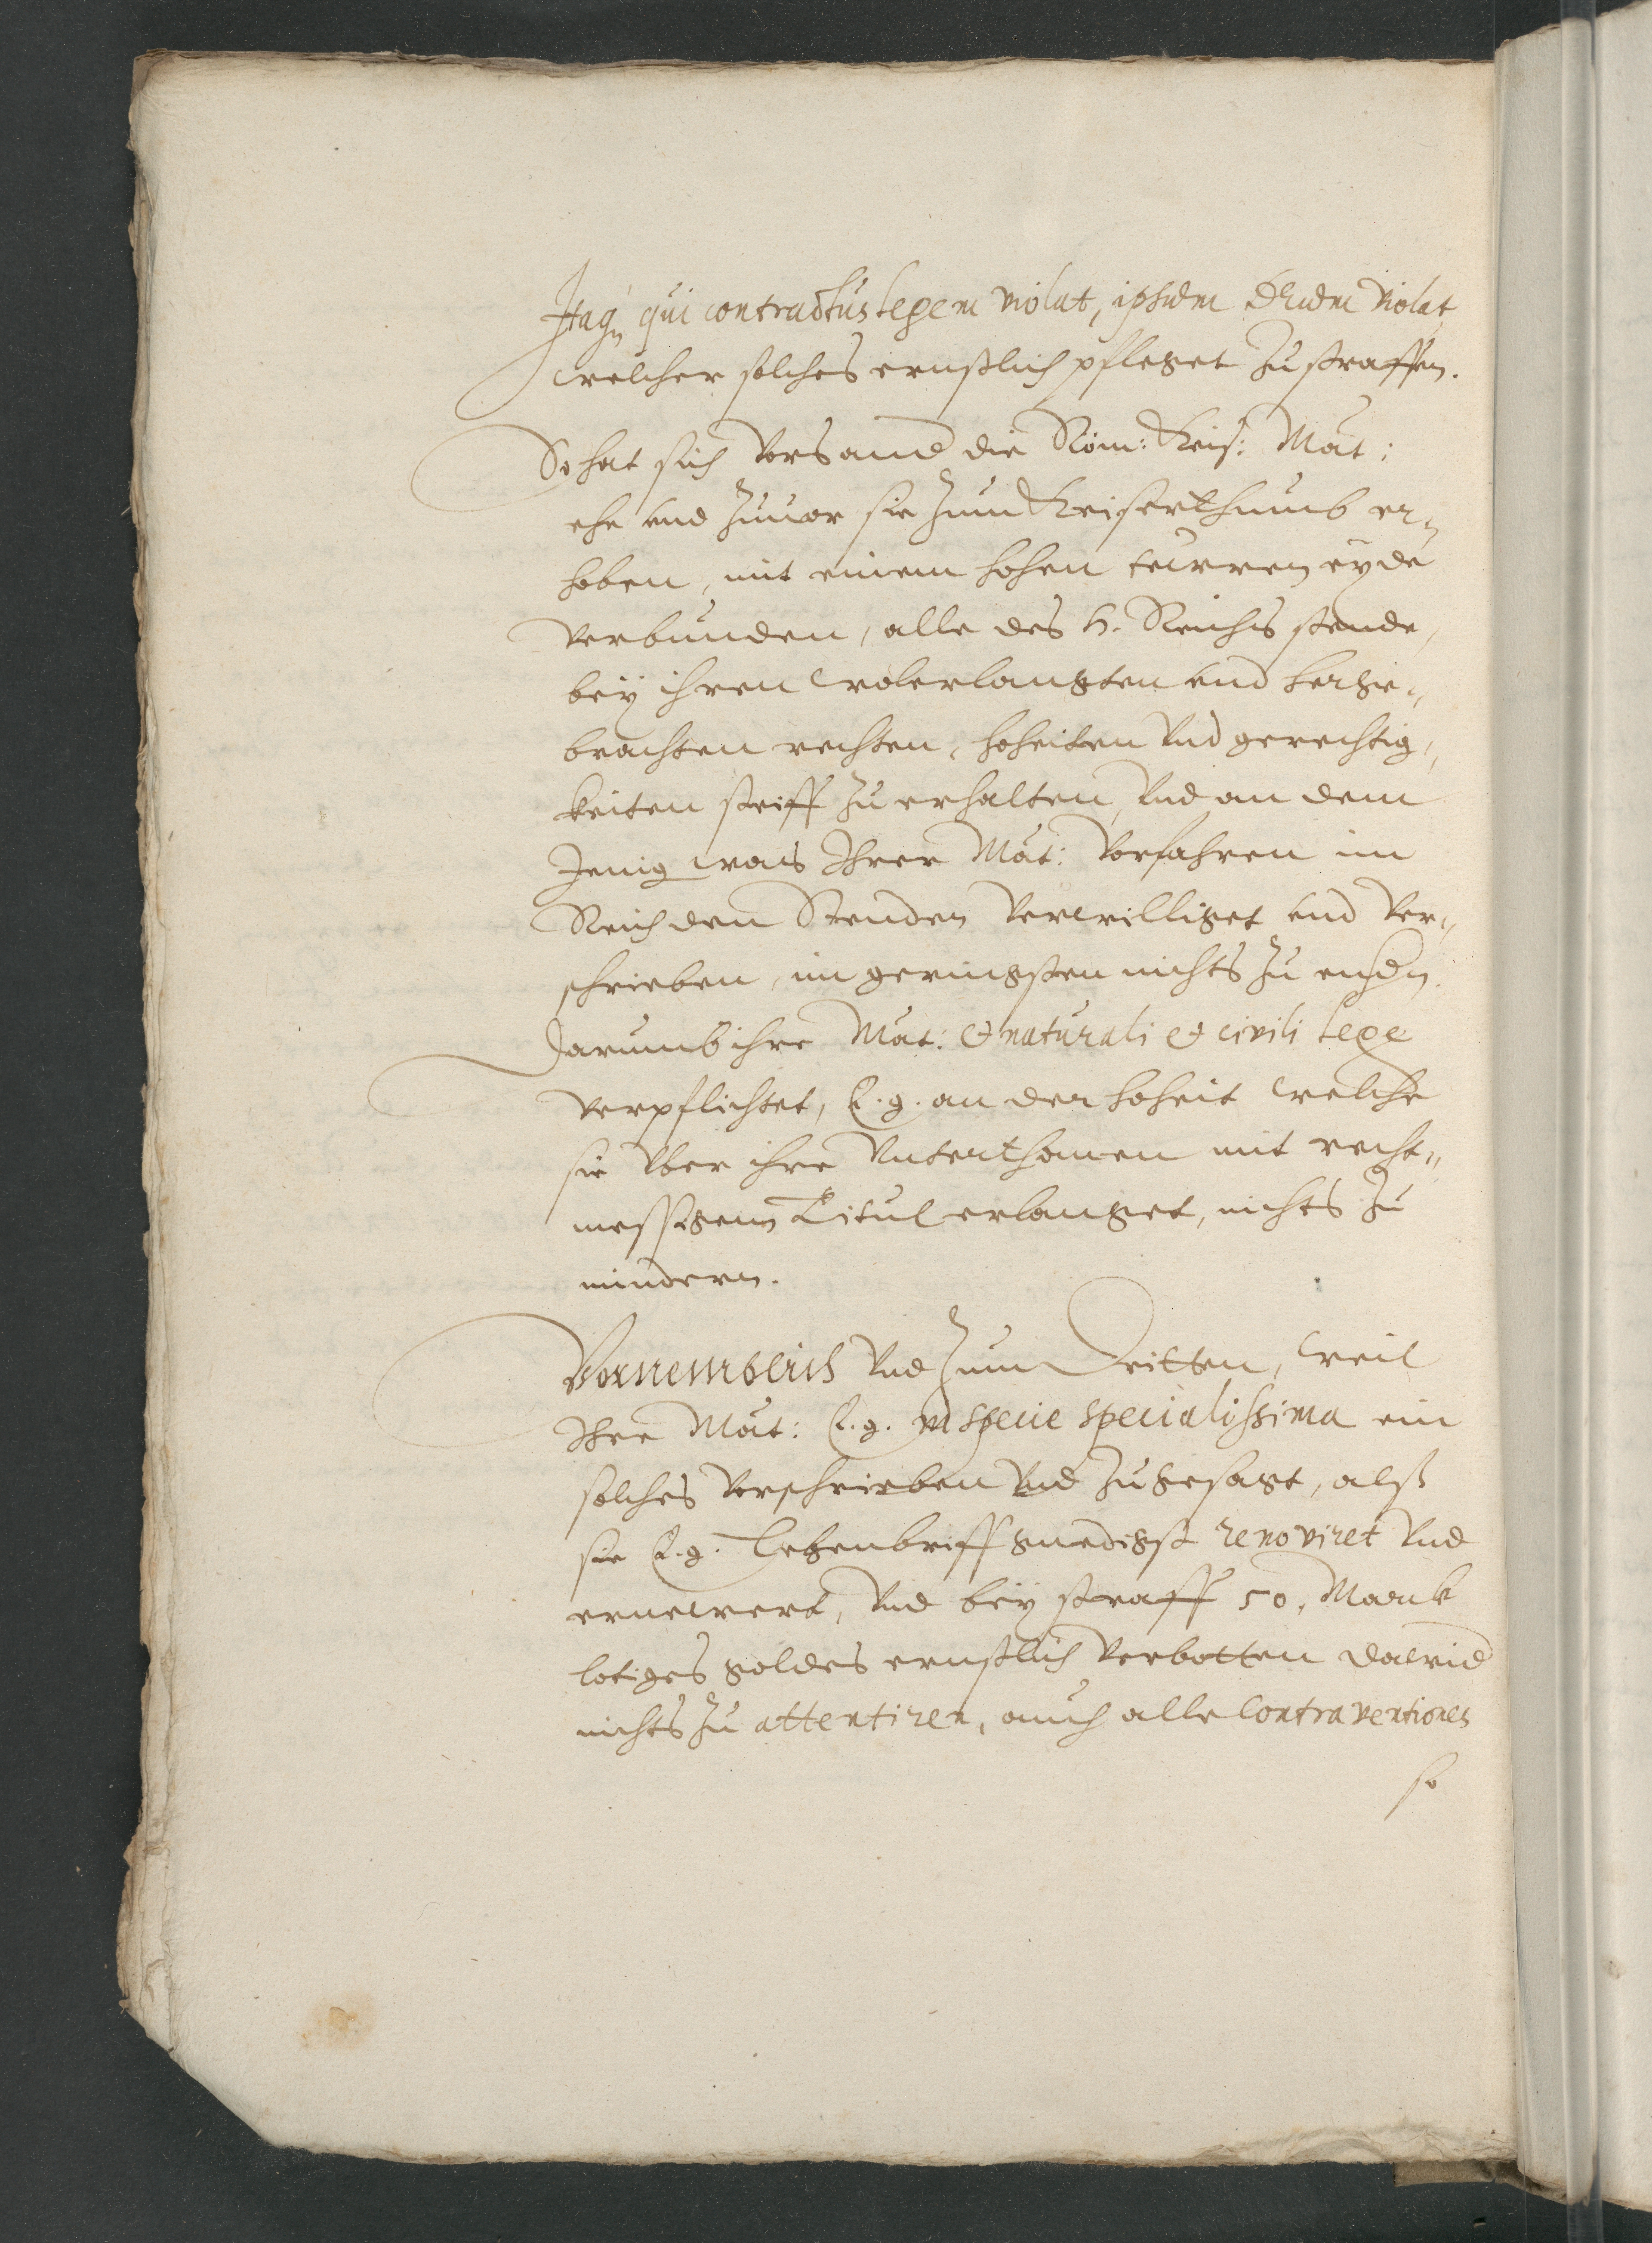 Itaq, qui contractus legem violat, ipsum Deum violat
welcher solches ernstlich pfleget zu straffen.
So hat sich vors and die Röm: Keis: Mat:
ehe und zuuor sie zum Keiserthumb er„
hoben, mit einem hohen teuren eyde
verbunden, alle des H. Reichs stende,
bey ihren wolerlangten und herge„
brachten rechten, hoheiten und gerechtig„
keiten steiff zu erhalten, und an dem
Jenig was Ihrer Mat: Vorfahren im
Reich den Stenden verwilliget und ver„
schrieben, im geringsten nichts zu endn.
Darumb ihre Mat: et naturali et civili lege
verpflichtet, E. g. an der hoheit welche
sie uber ihre Unterthanen mit recht„
messigem Titul erlanget, nichts zu
mindern.
Vornemblich und zum Dritten, weil
Ihre Mat: E. g. in specie specialissima ein
solches verschrieben und zugesagt, alß
sie E. g. Lehenbriff gnedigst renoviret und
ernewert, und bey straff 50. Marck
lotiges goldes ernstlich verbotten dawid
nichts zu attentiren, auch alle Contraventiones
so